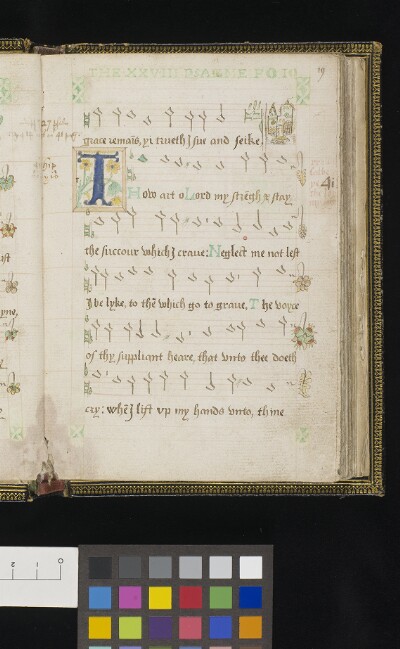 THE XXVIII PSALME FO 19
19
grace remaīs, yi trueth I sue and seike.
THow art o Lord my strēgh & stay
the succour which I craue: Neglect me not lest
I be lyke, to thē which go to graue, The voyce
of thy suppliant heare, that vnto thee doeth
cry: whē I lift vp my hands vnto, thine
4i
ast
0
1
2